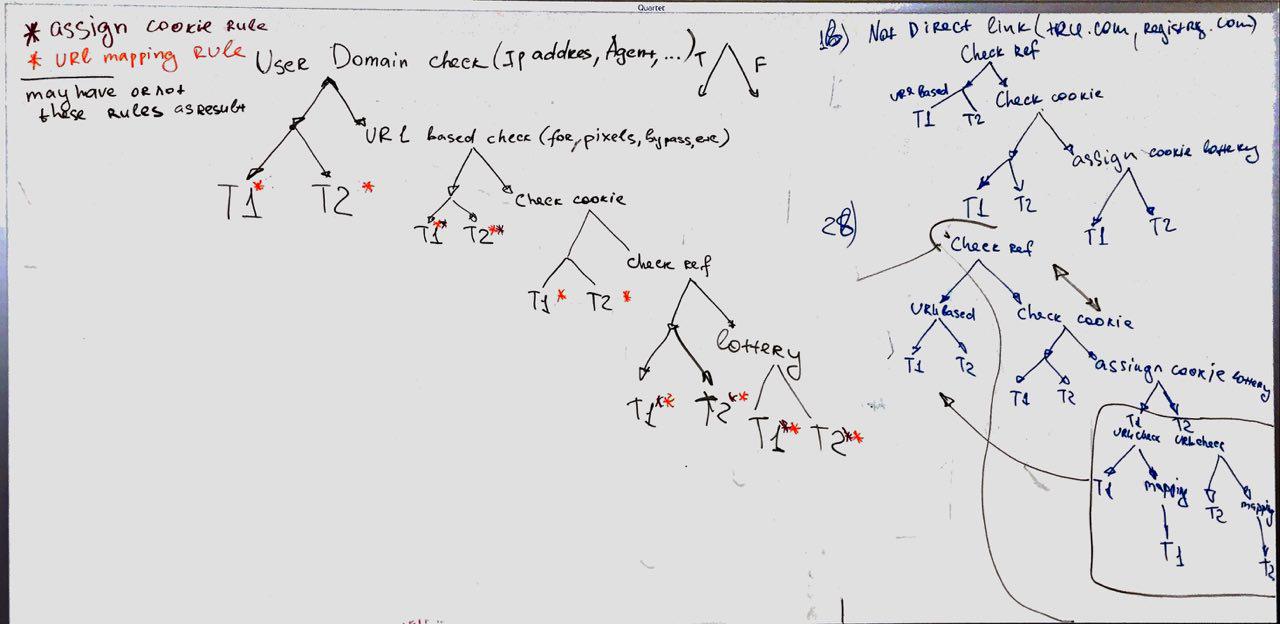 Quarter
* assign cookie rule
* URL mapping Rule
may have or not
these rules as result
User Domain check (Ip addres, Agent, ...)
T F
T1* T2 *
URL based check (for, pixels, bypass, etc)
T1** T2**
Check cookie
T1 * T2 *
Check Ref
T1** T2**
lottery
T1** T2**
1B) Not Direct link (tru.com, registry.com)
Check Ref
URL Based
T1 T2
Check cookie
T1 T2
assign cookie lottery
T1 T2
2B)
Check Ref
URL Based
T1 T2
Check cookie
T1 T2
assign cookie lottery
T1 T2
URL check URL check
T1 mapping T2 mapping
T1 T2